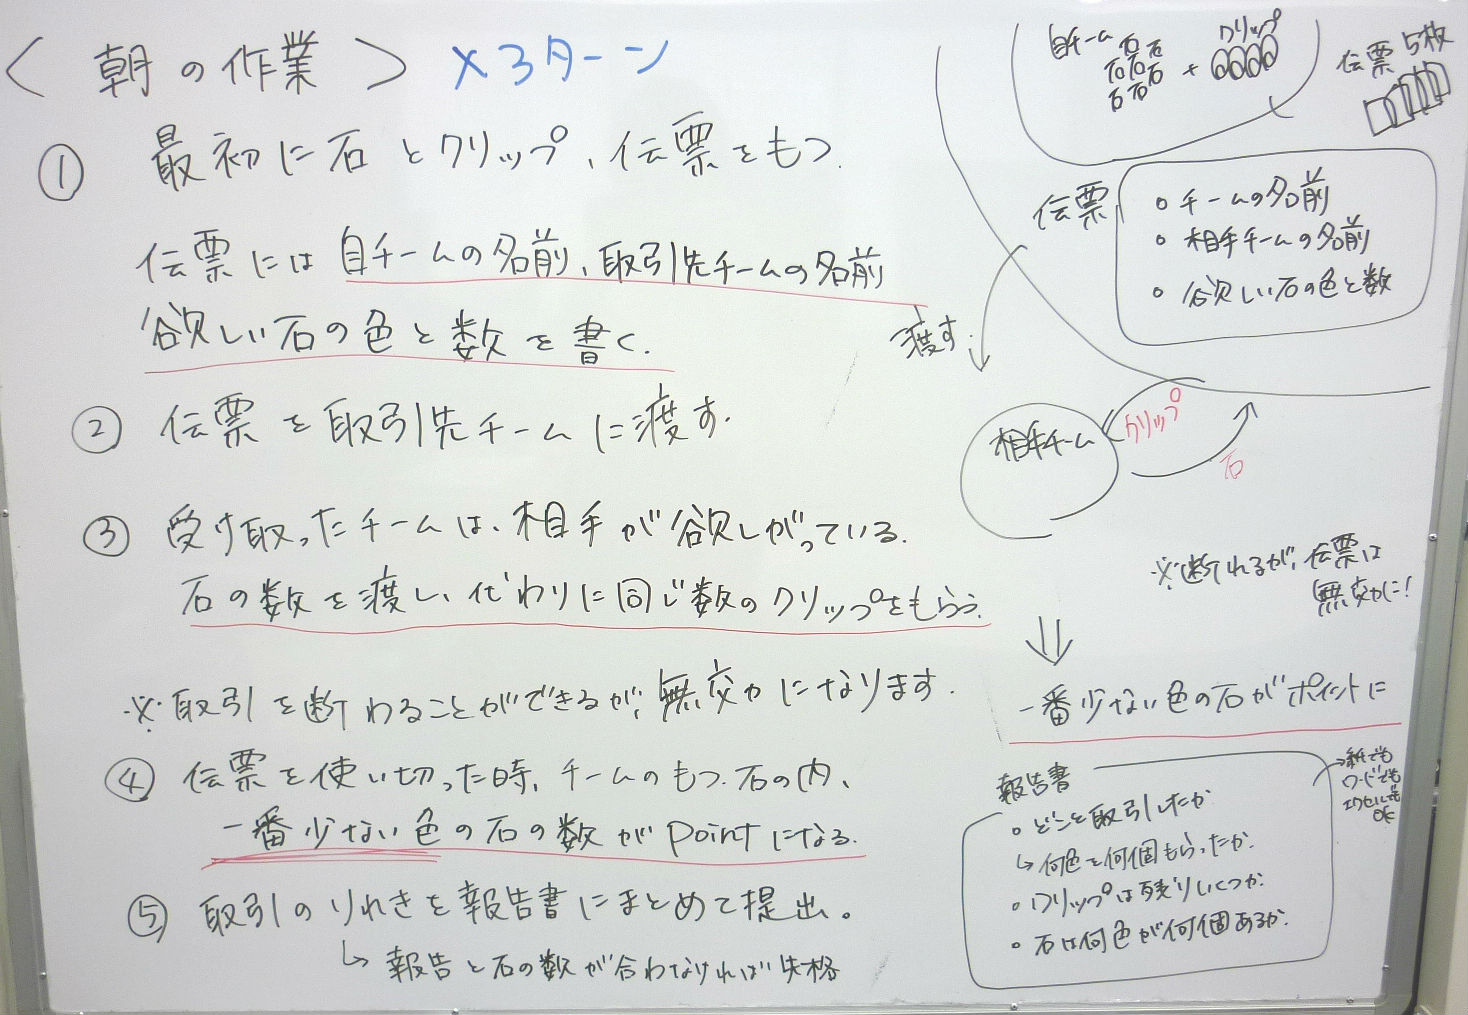 ＜ 朝の作業 ＞ ×3ターン
① 最初に石とクリップ、伝票をもつ.
伝票には自チームの名前、取引先チームの名前
欲しい石の色と数を書く.
② 伝票を取引先チームに渡す.
③ 受け取ったチームは、相手が欲しがっている.
石の数を渡し、代わりに同じ数のクリップをもらう.
※取引を断わることができるが、無効になります.
④ 伝票を使い切った時、チームのもつ石の内、
一番少ない色の石の数がpointになる.
⑤ 取引のりれきを報告書にまとめて提出。
↳ 報告と石の数が合わなければ失格
自チーム
石 石
石 石 石
石 石
+
クリップ
伝票 5枚
伝票
○ チームの名前
○ 相手チームの名前
○ 欲しい石の色と数
渡す.
相手チーム
クリップ
石
※断れるが、伝票は
無効に!
⇓
一番少ない色の石がポイントに
報告書
○ どこと取引したか
↳ 何色を何個もらったか.
○ クリップは残りいくつか.
○ 石は何色が何個あるか.
→紙でも
ワードでも
エクセルでも
OK